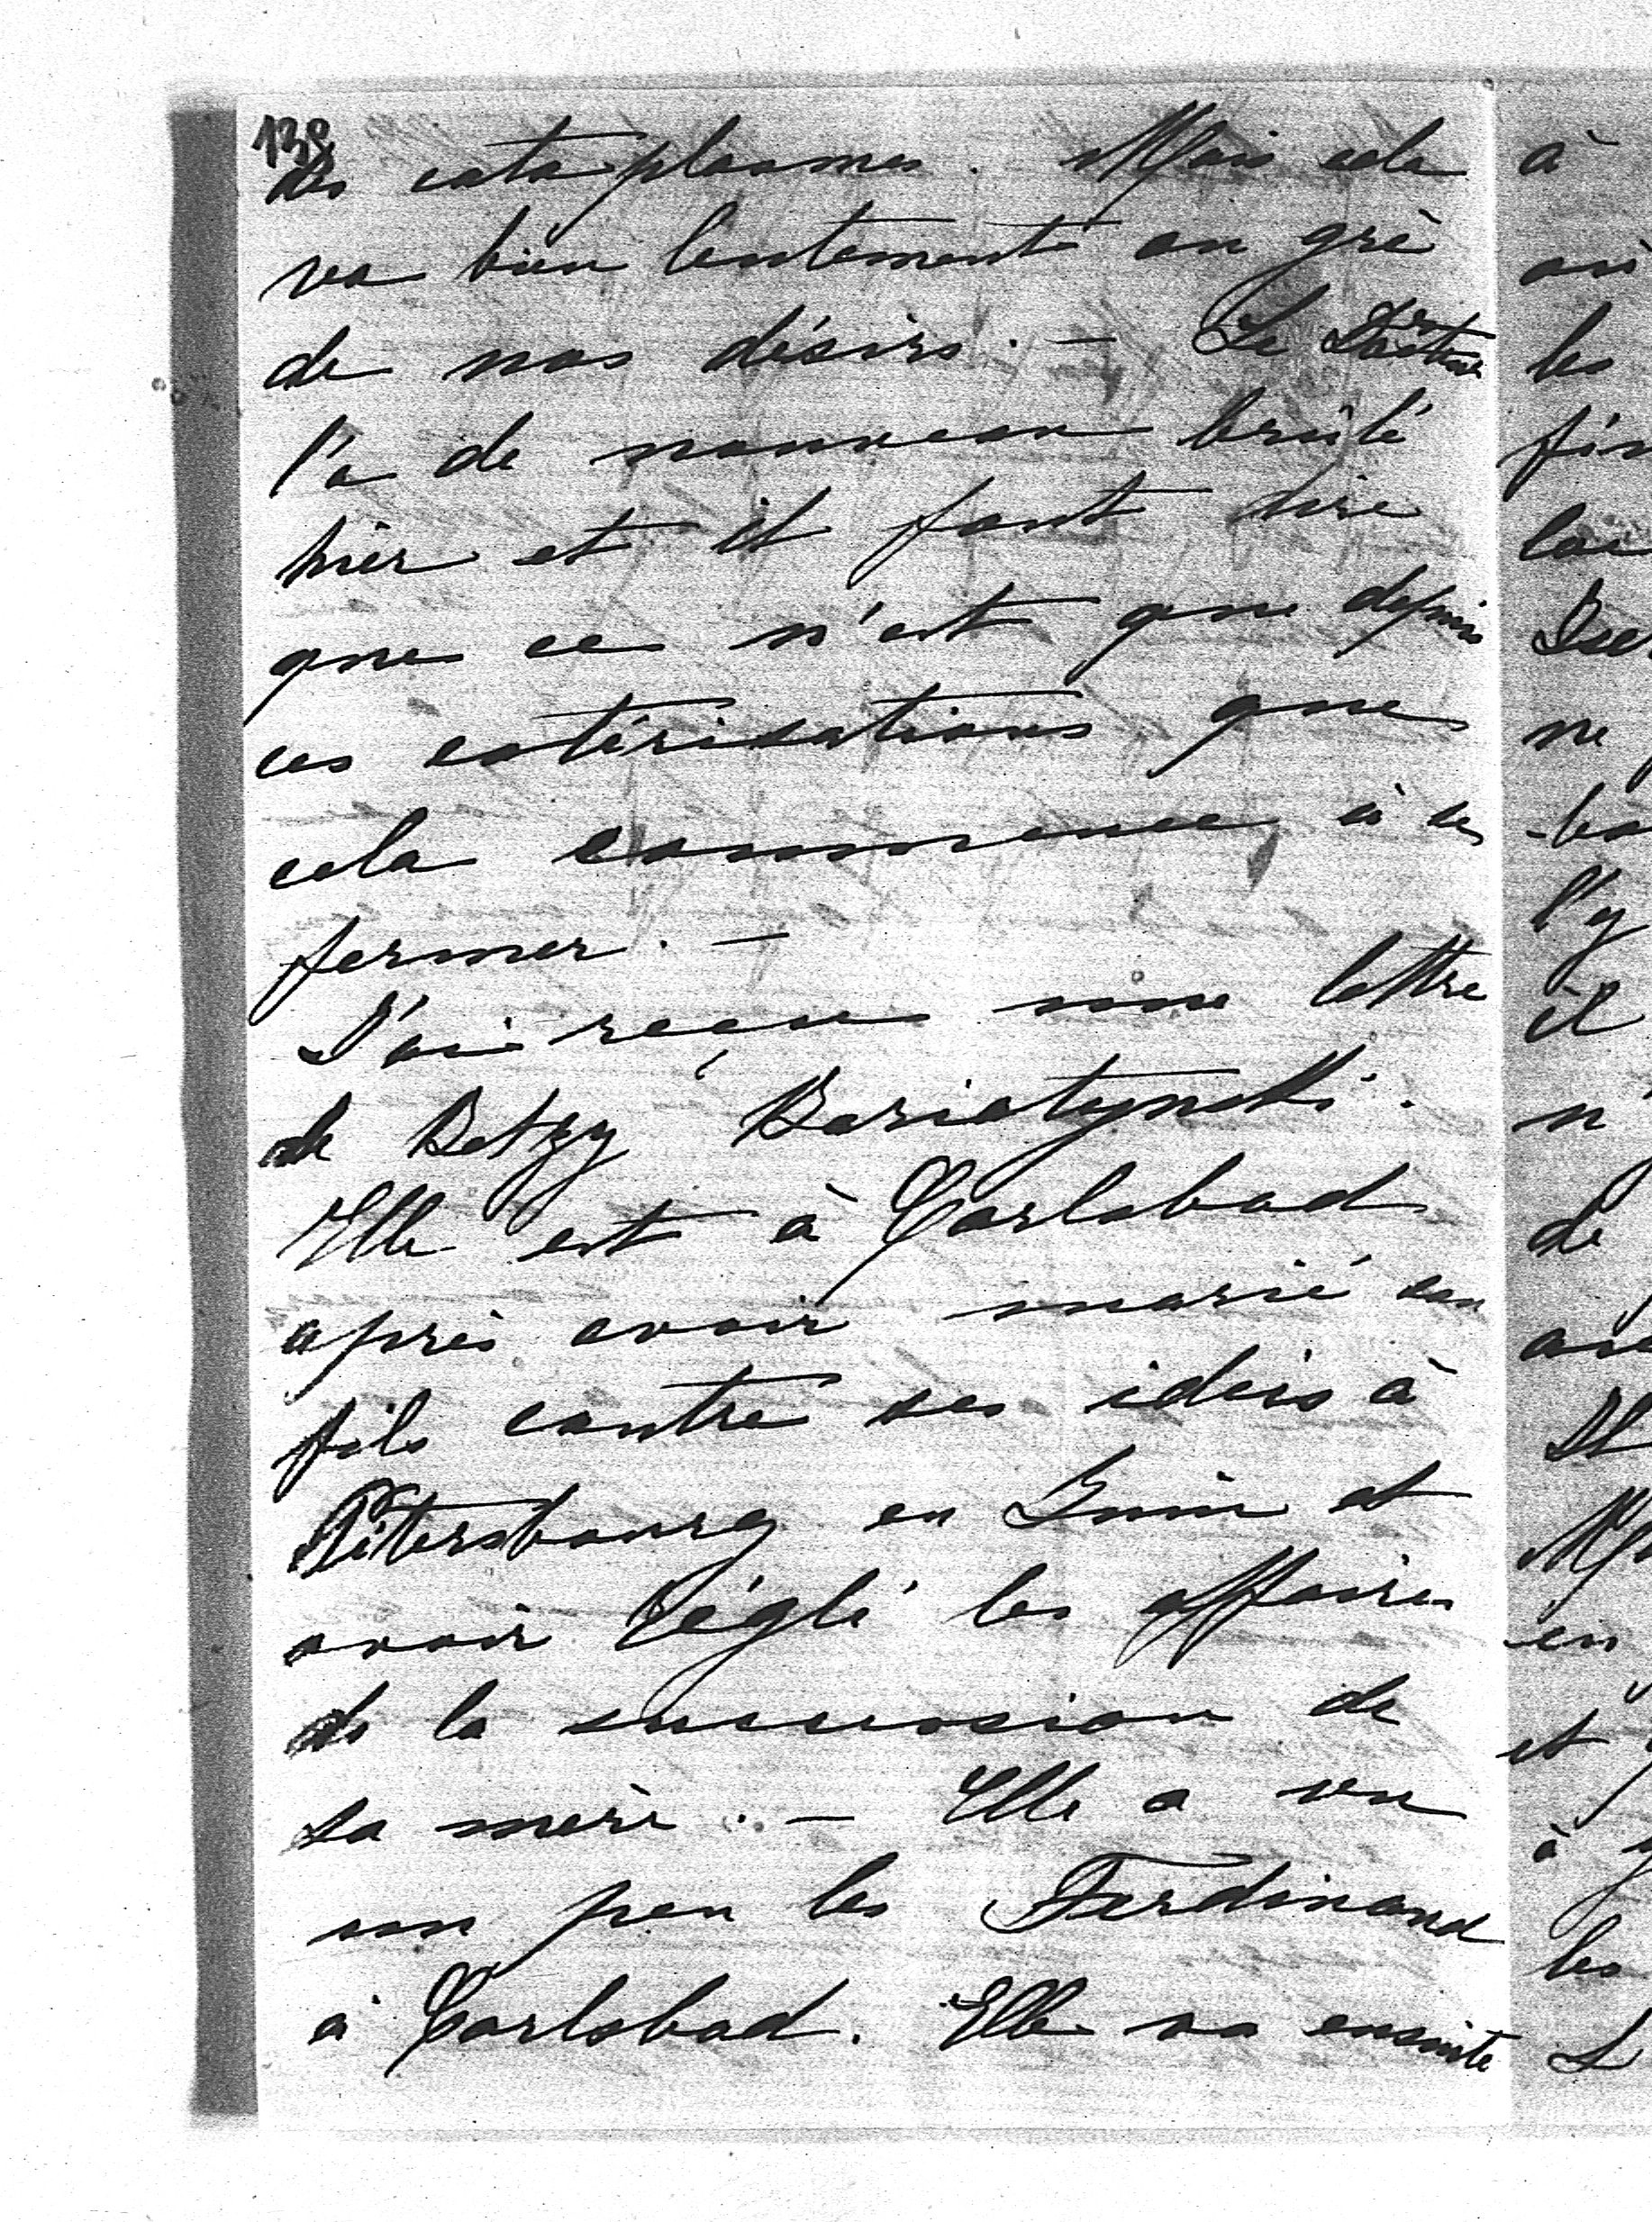 138
des cataplasmes. Mais cela
va bien lentement au gré
de nos désirs. — Le Docteur
l'a de nouveau brûlé
hier et il faut dire
que ce n'est que depuis
ces cotérisations que
cela commence à se
fermer. —
J'ai reçu une lettre
de Betzy Bariatynski.
Elle est à Carlsbad
après avoir marié son
fils contre ses idées à
Pétersbourg en Juin et
avoir réglé les affaires
de la succession de
sa mère. — Elle a vu
un peu les Ferdinand
à Carlsbad. Elle va ensuite
à
les
ne
l'y
il
de
en
et
à
les